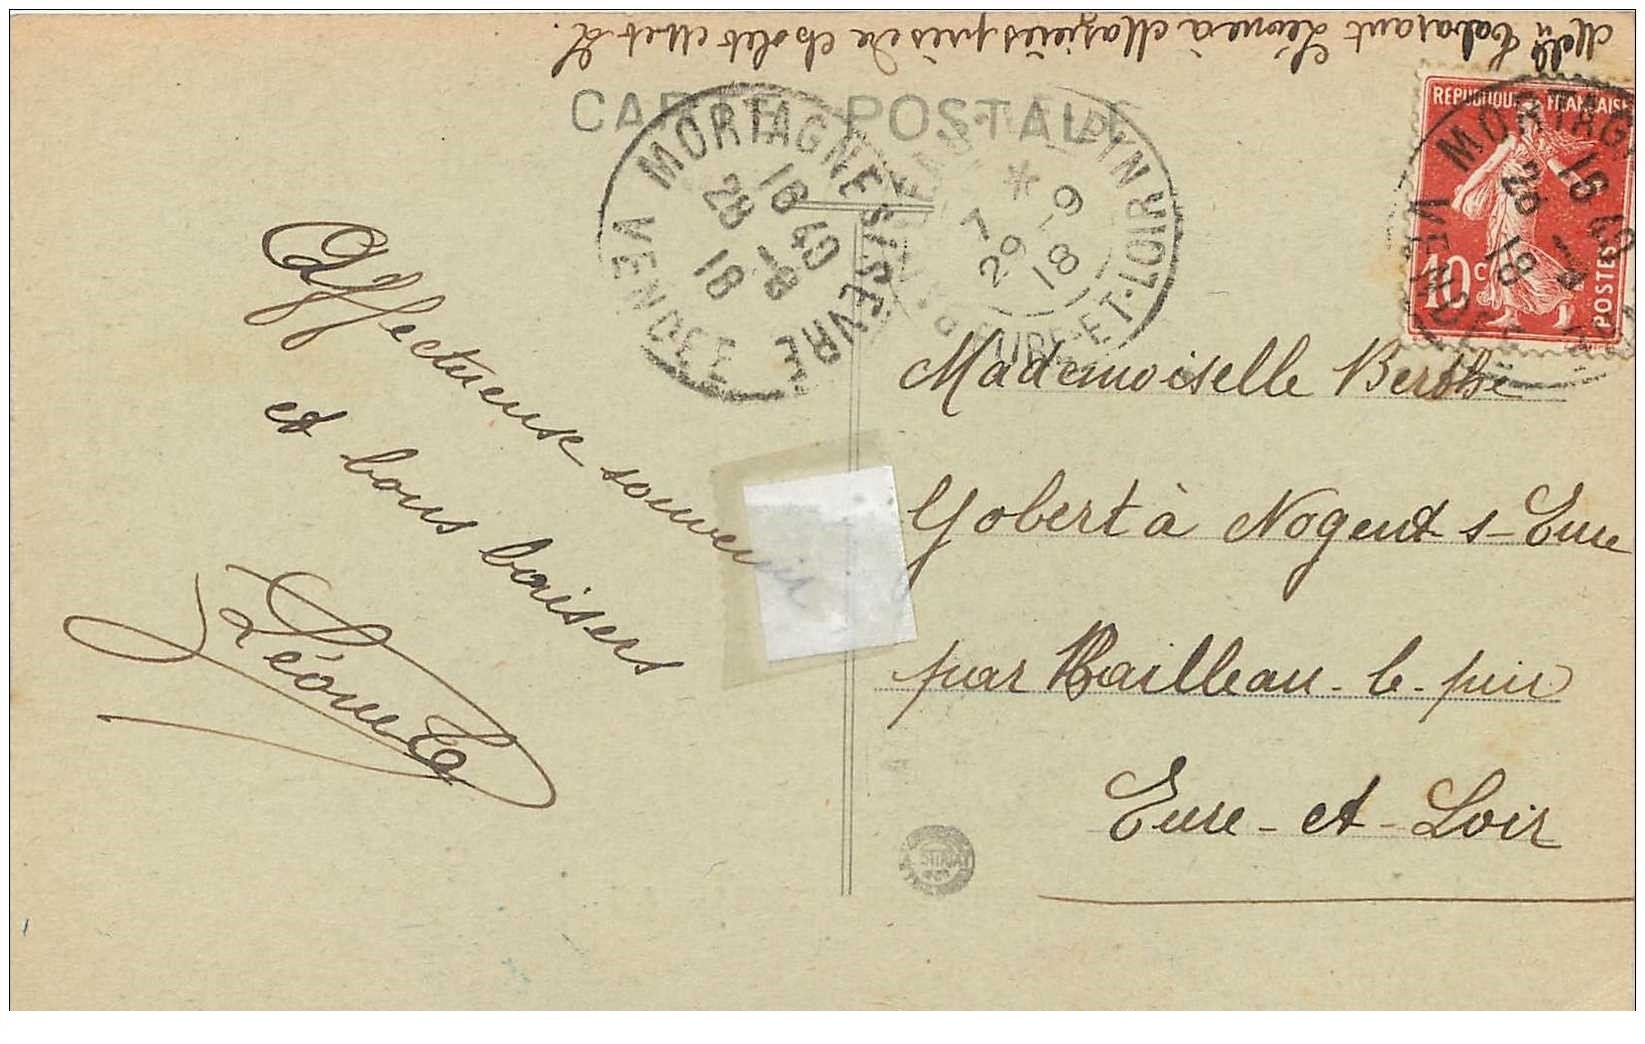 Mlle Tavasant Léone à Mazières près de Cholet M et L.
CARTE POSTALE
MORTAGNE S/ SEVRE
16 40
28 -9
18
VENDEE
7 *
29 -9
18
EURE-ET-LOIR
REPUBLIQUE FRANÇAISE
10c
POSTES
MORTAGNE
16 40
28 -9
18
VENDEE
Affectueuse souvenir
et bons baisers
Léone T
Mademoiselle Berthe
Gobert à Nogent s-Eure
par Bailleau-le-pin
Eure-et-Loir